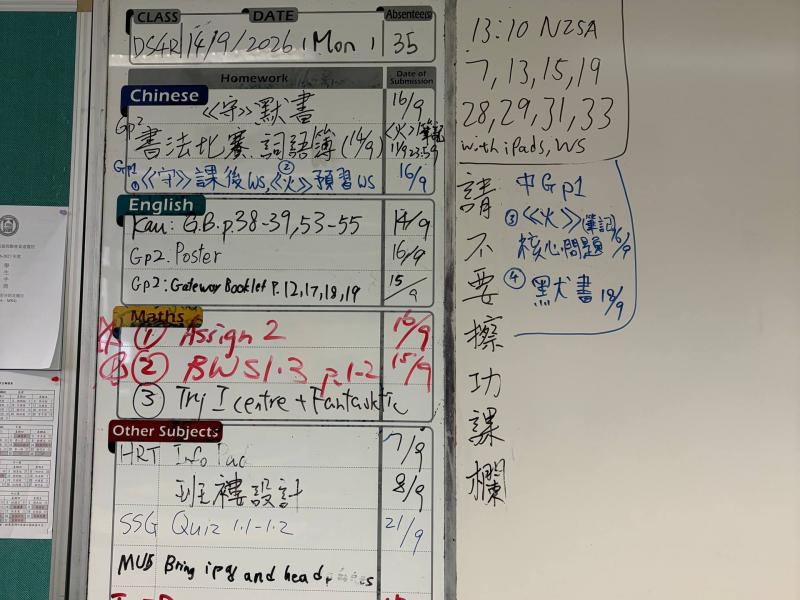 CLASS DATE Absentees
DS4R 14/9/2026 (Mon) 35
Homework Date of Submission
Chinese
《守》默書 16/9
Gp2 書法比賽 詞語簿 (14/9) 《火》筆記 17/9 23:59
Gp1 ①《守》課後WS, ②《火》預習WS 16/9
English
Kau: G.B.p.38-39,53-55 14/9
Gp2. Poster 16/9
Gp2: Gateway Booklet P.12,17,18,19 15/9
Maths
① Assign 2 16/9
② BWS1.3 p.1-2 15/9
③ Try I centre + Fantasktic
Other Subjects
HRT Info Pac 7/9
班褸設計 8/9
SSG Quiz 1.1-1.2 21/9
Bring and head
13:10 NZSA
7, 13, 15, 19
28, 29, 31, 33
with iPads, WS
請不要擦功課欄
中Gp1
③《火》(筆記)
核心問題 16/9
④ 默書 18/9